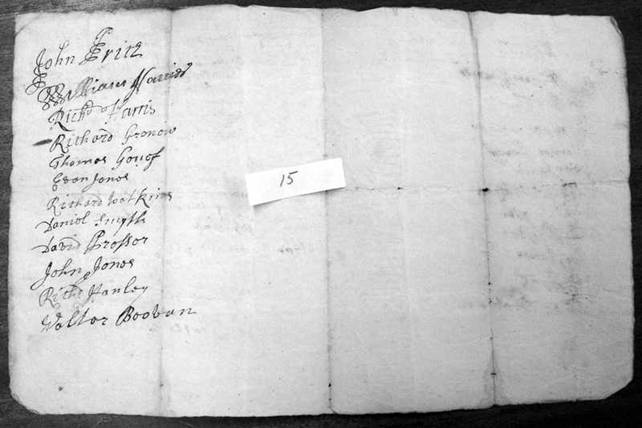 John Price
William Harris
Richd Harris
Richard Gronow
Thomas Gouef
Evan Jones
Richard Watkins
Daniel Smyth
David Prosser
John Jones
Richd Hanley
Walter Boovan
15